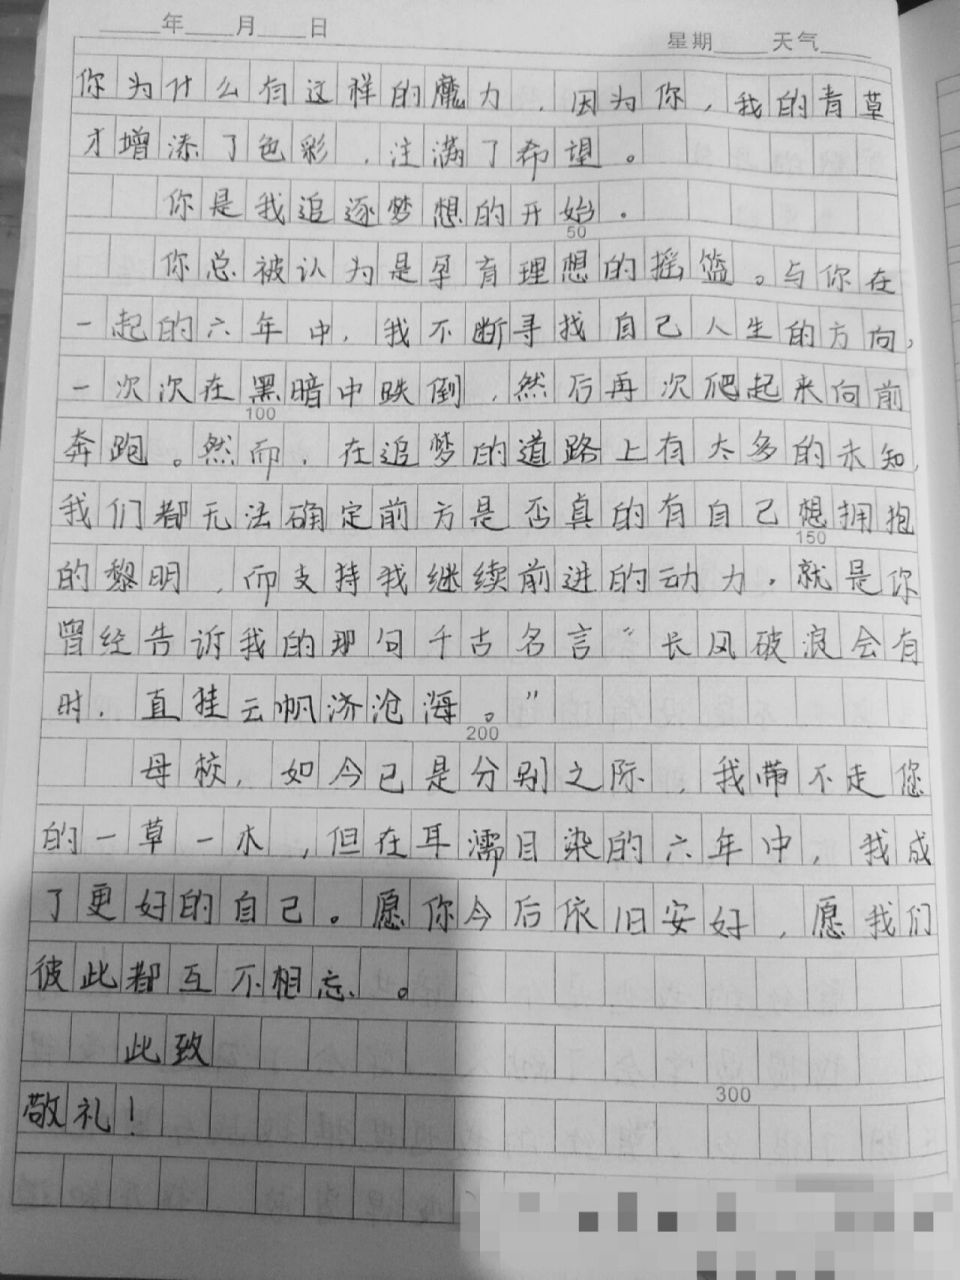 ____年____月____日
星期____天气____
你为什么有这样的魔力，因为你，我的青草
才增添了色彩，注满了希望。
你是我追逐梦想的开始。
50
你总被认为是孕育理想的摇篮。与你在
一起的六年中，我不断寻找自己人生的方向，
一次次在黑暗中跌倒，然后再次爬起来向前
100
奔跑。然而，在追梦的道路上有太多的未知，
我们都无法确定前方是否真的有自己想拥抱
150
的黎明，而支持我继续前进的动力，就是你
曾经告诉我的那句千古名言“长风破浪会有
时，直挂云帆济沧海。”
200
母校，如今已是分别之际，我带不走您
的一草一木，但在耳濡目染的六年中，我成
了更好的自己。愿你今后依旧安好，愿我们
彼此都互不相忘。
此致
300
敬礼！